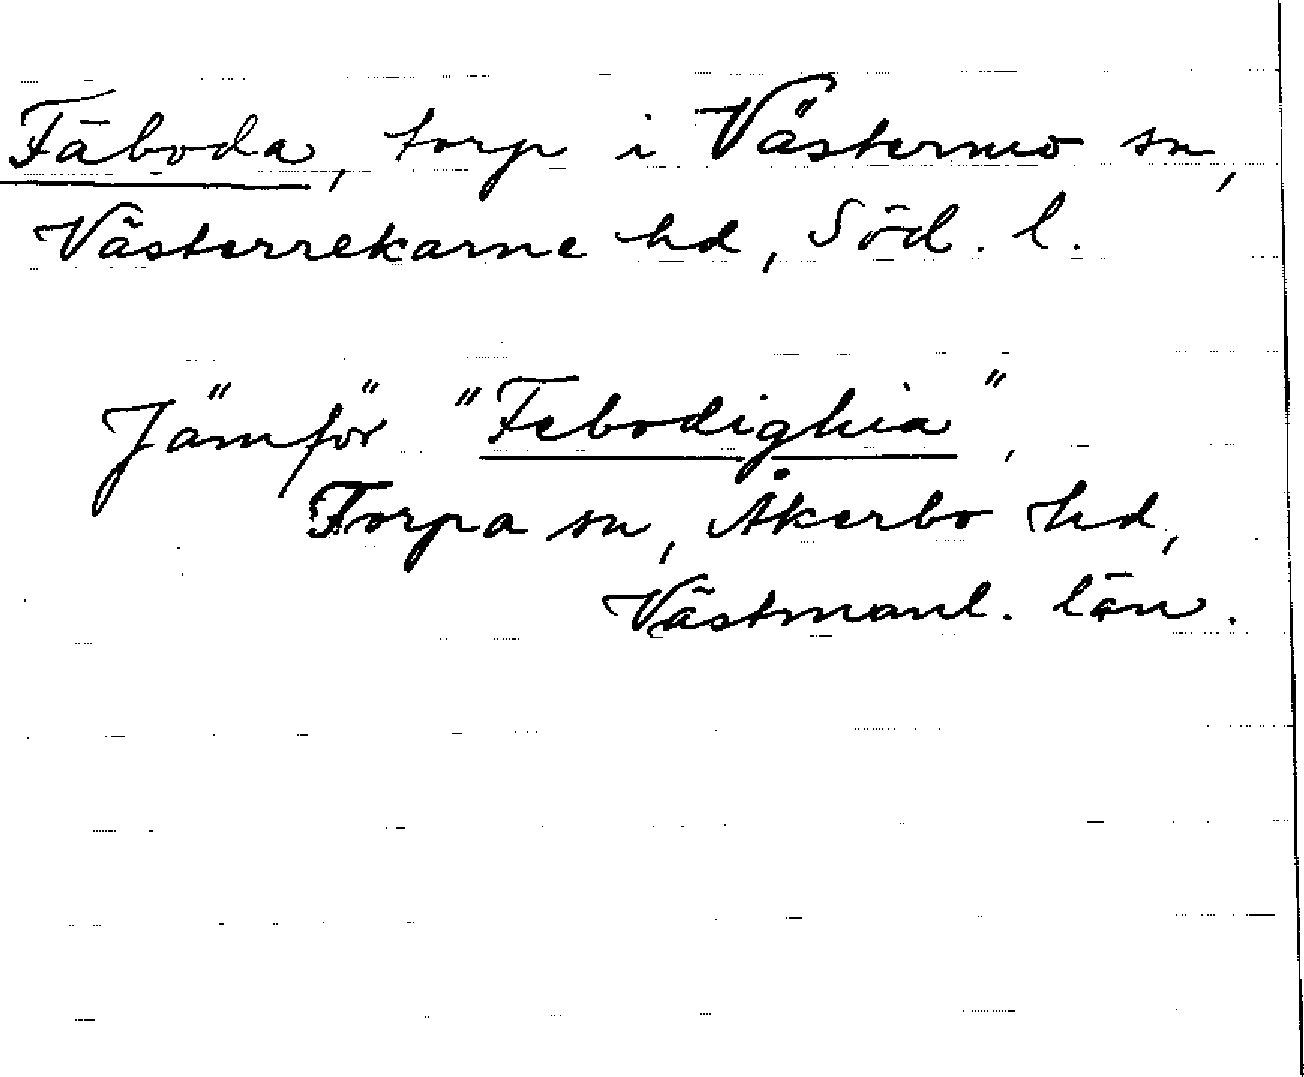 Fäboda, torp i Västermo sn,
Västerrekarne hd, Söd. l.
Jämför "Febodighia",
Torpa sn, Åkerbo hd,
Västmanl. län.